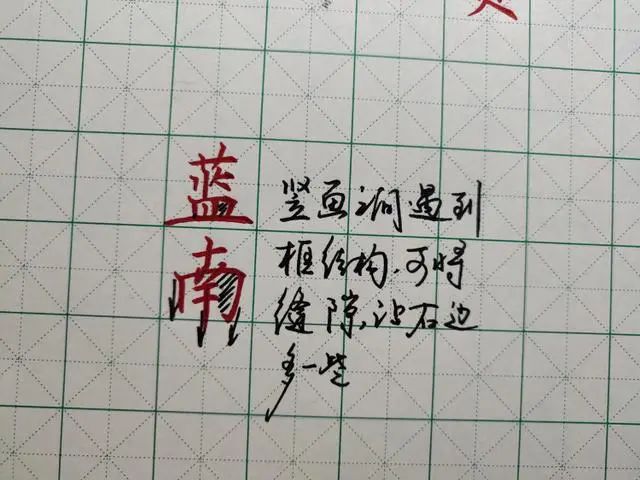 蓝
南
竖画之间遇到
框结构,可将
缝隙,让右边
多一些